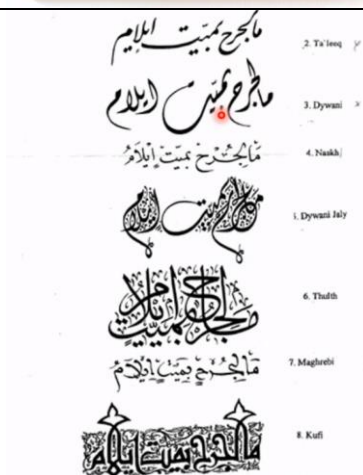 ما لجرح بميت إيلام 2. Ta'leeq
ما لجرح بميت ايلام 3. Dywani
مَا لِجُرْحٍ بِمَيِّتٍ إِيْلاَمُ 4. Naskh
ما لجرح بميت ايلام 5. Dywani Jaly
ما لجرح بميت إيلام 6. Thulth
مَا لِجُرْحٍ بِمَيِّتٍ إِيْلَامُ 7. Maghrebi
ما لجرح بميت إيلام 8. Kufi